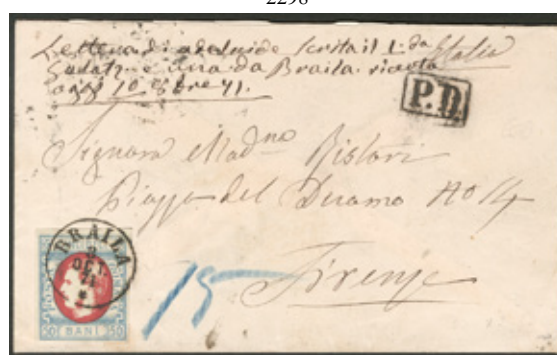 2298
Lettera di Adelaide scritta il 1. da
Galatz e una da Braila ricevta
oggi 10. 8bre 71.
Italia
P.D.
Signora Mad.na Ristori
Piazza del Duomo No 14
Firenze
15
BRAILA
2
OCT
71
50 BANI 50